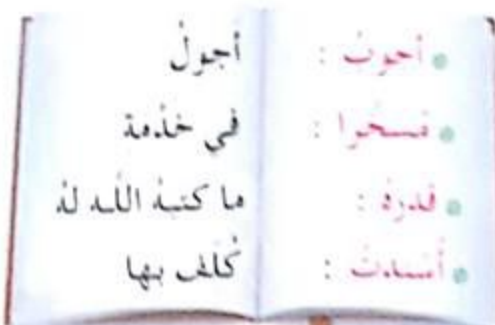 أجوبُ : أجولُ
مسخرا : في خدمة
قدرهُ : ما كتبهُ اللـه لهُ
أُسندتْ : كُلف بها